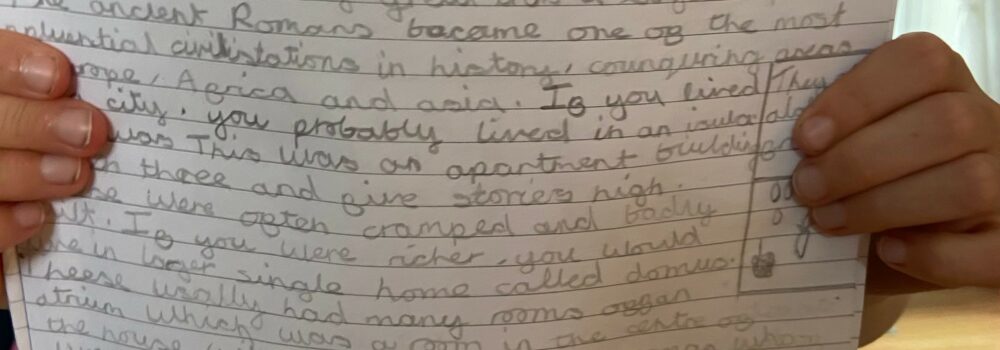 ancient Romans became one og the most
civilistations in history, counquring areas
Agrica and asia. Ig you lived They
city, you probably lived in an insula
was This was an apartment building
three and give stories high.
were ogten cramped and badly
Ig you were richer, you would
in larger single home called domus.
Theese usally had many rooms
atrium which was a room in the centre og
the house